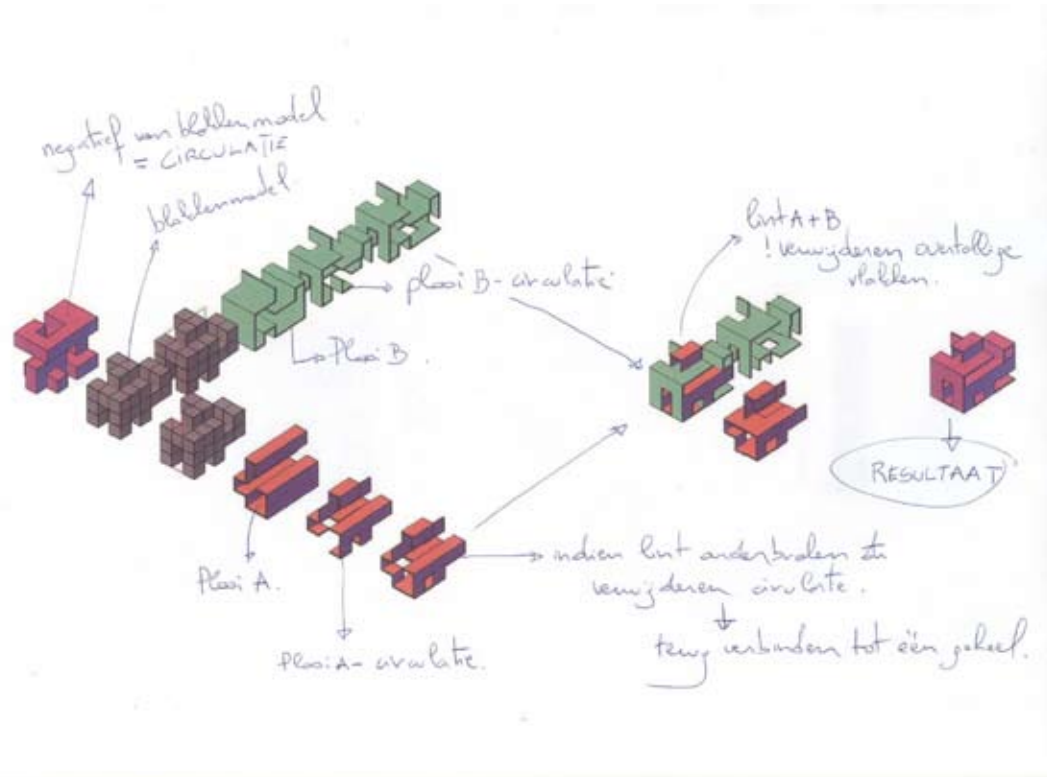 negatief van blokkenmodel
= CIRCULATIE
blokkenmodel
plooi B - circulatie
Plooi B.
lint A + B
! verwijderen overtollige
vlakken.
RESULTAAT
Plooi A.
Plooi A - circulatie.
indien lint onderbroken
verwijderen circulatie.
terug verbinden tot één geheel.